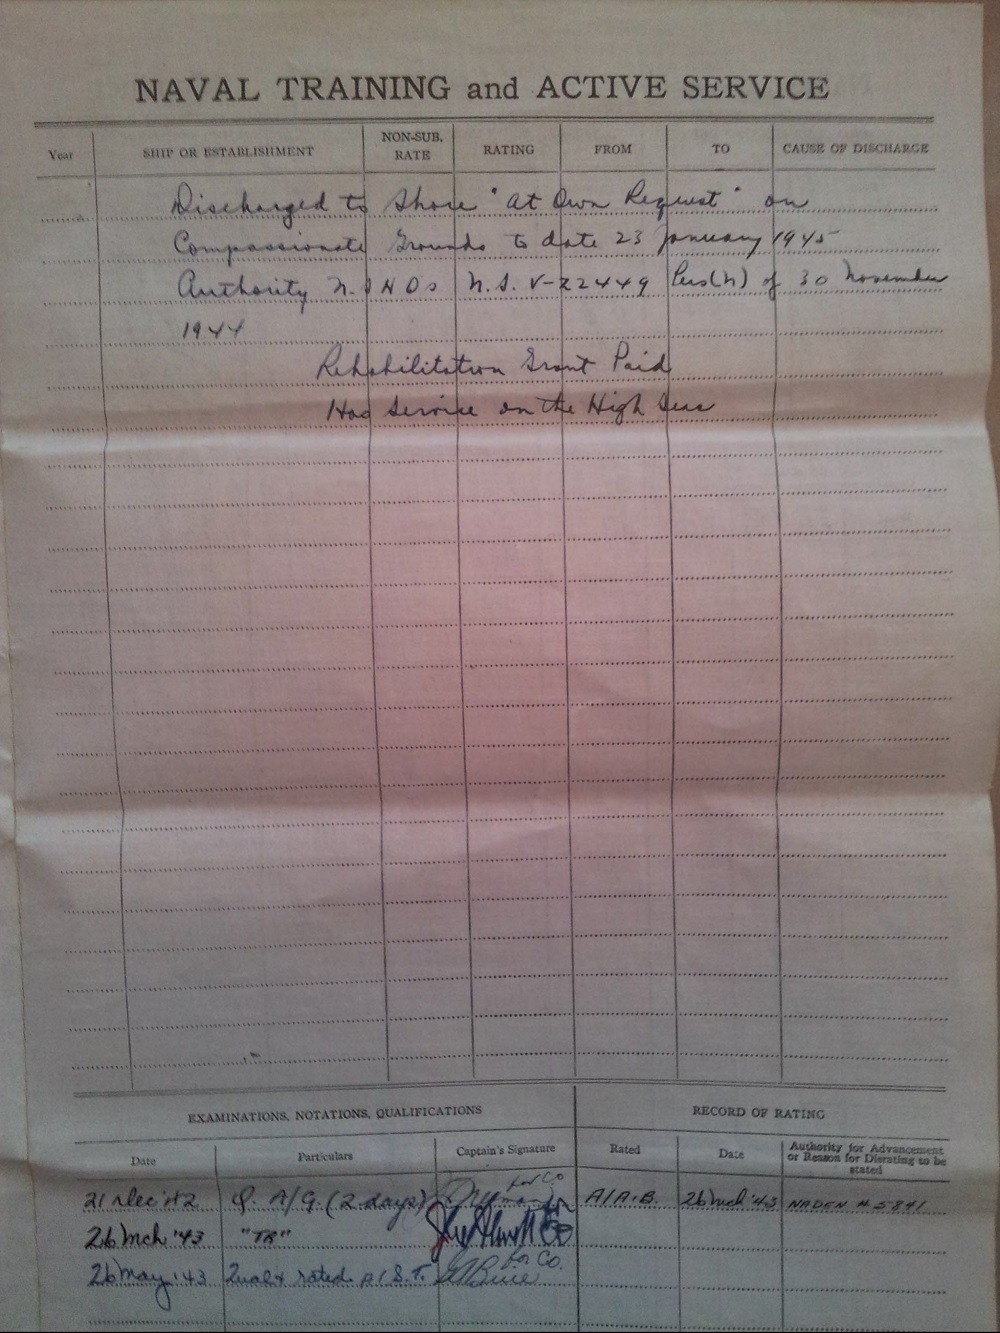 NAVAL TRAINING and ACTIVE SERVICE
Year SHIP OR ESTABLISHMENT NON-SUB. RATE RATING FROM TO CAUSE OF DISCHARGE
Discharged to Shore "At Own Request" on
Compassionate Grounds to date 23 January 1945
Authority N.S.V-22449 Pers(N) of 30 November
1944
Rehabilitation Grant Paid
Had Service on the High Seas
EXAMINATIONS, NOTATIONS, QUALIFICATIONS RECORD OF RATING
Date Particulars Captain's Signature Rated Date Authority for Advancement or Reason for Disrating to be stated
21 Dec '42 Q. A/G. (2 days) for CO A/A.B. 26 Mch '43 NADEN # 5841
26 Mch '43 "TR"
26 May '43 Qual & rated S.T. for Co.